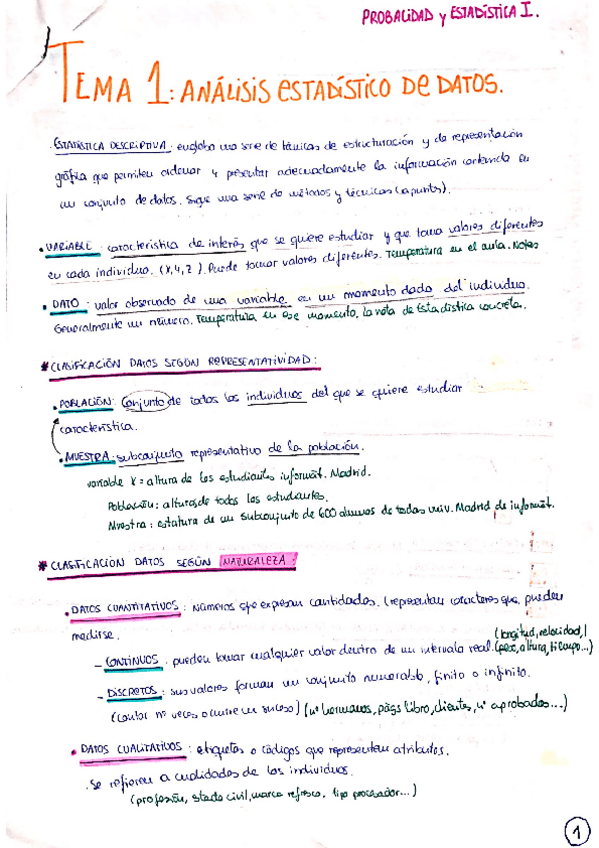 PROBALIDAD y ESTADÍSTICA I.
TEMA 1: ANÁLISIS ESTADÍSTICO DE DATOS.
ESTADÍSTICA DESCRIPTIVA: engloba una serie de técnicas de estructuración y de representación
gráfica que permiten ordenar y presentar adecuadamente la información contenida en
un conjunto de datos. Sigue una serie de métodos y técnicas (apunts).
• VARIABLE: característica de interés que se quiere estudiar y que toma valores diferentes
en cada individuo. (X, Y, Z). Puede tomar valores diferentes. Temperatura en el aula. Notas
• DATO: valor observado de una variable en un momento dado del individuo.
Generalmente un número. Temperatura en ese momento. La nota de Estadística concreta.
* CLASIFICACIÓN DATOS SEGÚN REPRESENTATIVIDAD:
• POBLACIÓN: Conjunto de todos los individuos del que se quiere estudiar
característica.
• MUESTRA: subconjunto representativo de la población.
variable X = altura de los estudiantes informát. Madrid.
Población: alturas de todos los estudiantes.
Muestra: estatura de un subconjunto de 600 alumnos de todas univ. Madrid de informát.
* CLASIFICACIÓN DATOS SEGÚN NATURALEZA:
• DATOS CUANTITATIVOS: Números que expresan cantidades. (representan caracteres que pueden
medirse.
(longitud, velocidad,
– CONTINUOS: pueden tomar cualquier valor dentro de un intervalo real. (peso, altura, tiempo...)
– DISCRETOS: sus valores forman un conjunto numerable, finito o infinito.
(contar nº veces ocurre un suceso) (nº hermanos, págs libro, clientes, nº aprobados...)
• DATOS CUALITATIVOS: etiquetas o códigos que representan atributos.
. Se refieren a cualidades de los individuos.
(profesión, stado civil, marca refresco, tipo procesador...)
1